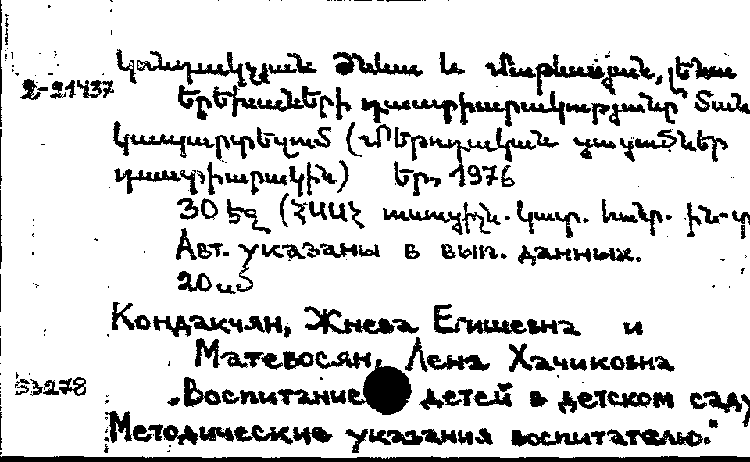 Կոնդակչյան Ժնևա և Մաթևոսյան, Լենա
2-21437
Երեխաների դաստիարակությանը՝ տան
կապարտեզում (Մեթոդական ցուցումներ
դաստիարակին) Եր., 1976
30 էջ (ՀՍՍՀ
Авт. указаны в вып. данных.
20 սմ
Кондакчян, Жнева Егишевна и
Матевосян, Лена Хачиковна
53278
„Воспитание детей в детском саду
Методические указания воспитателю."